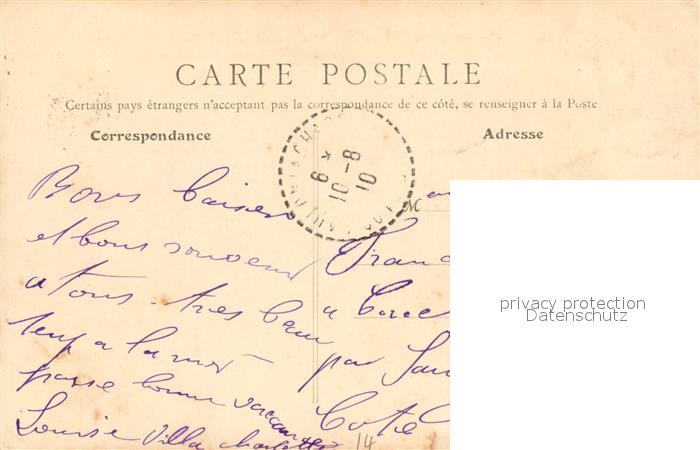 CARTE POSTALE
Certains pays étrangers n'acceptant pas la correspondance de ce côté, se renseigner à la Poste
Correspondance
Adresse
8
10-8
10
Bons baisers
et bons souvenir
a tous. très beau
temp a la mer
passe bonne vacances
Louise Villa Charlotte
Franc
a
par
Cote
14
privacy protection
Datenschutz